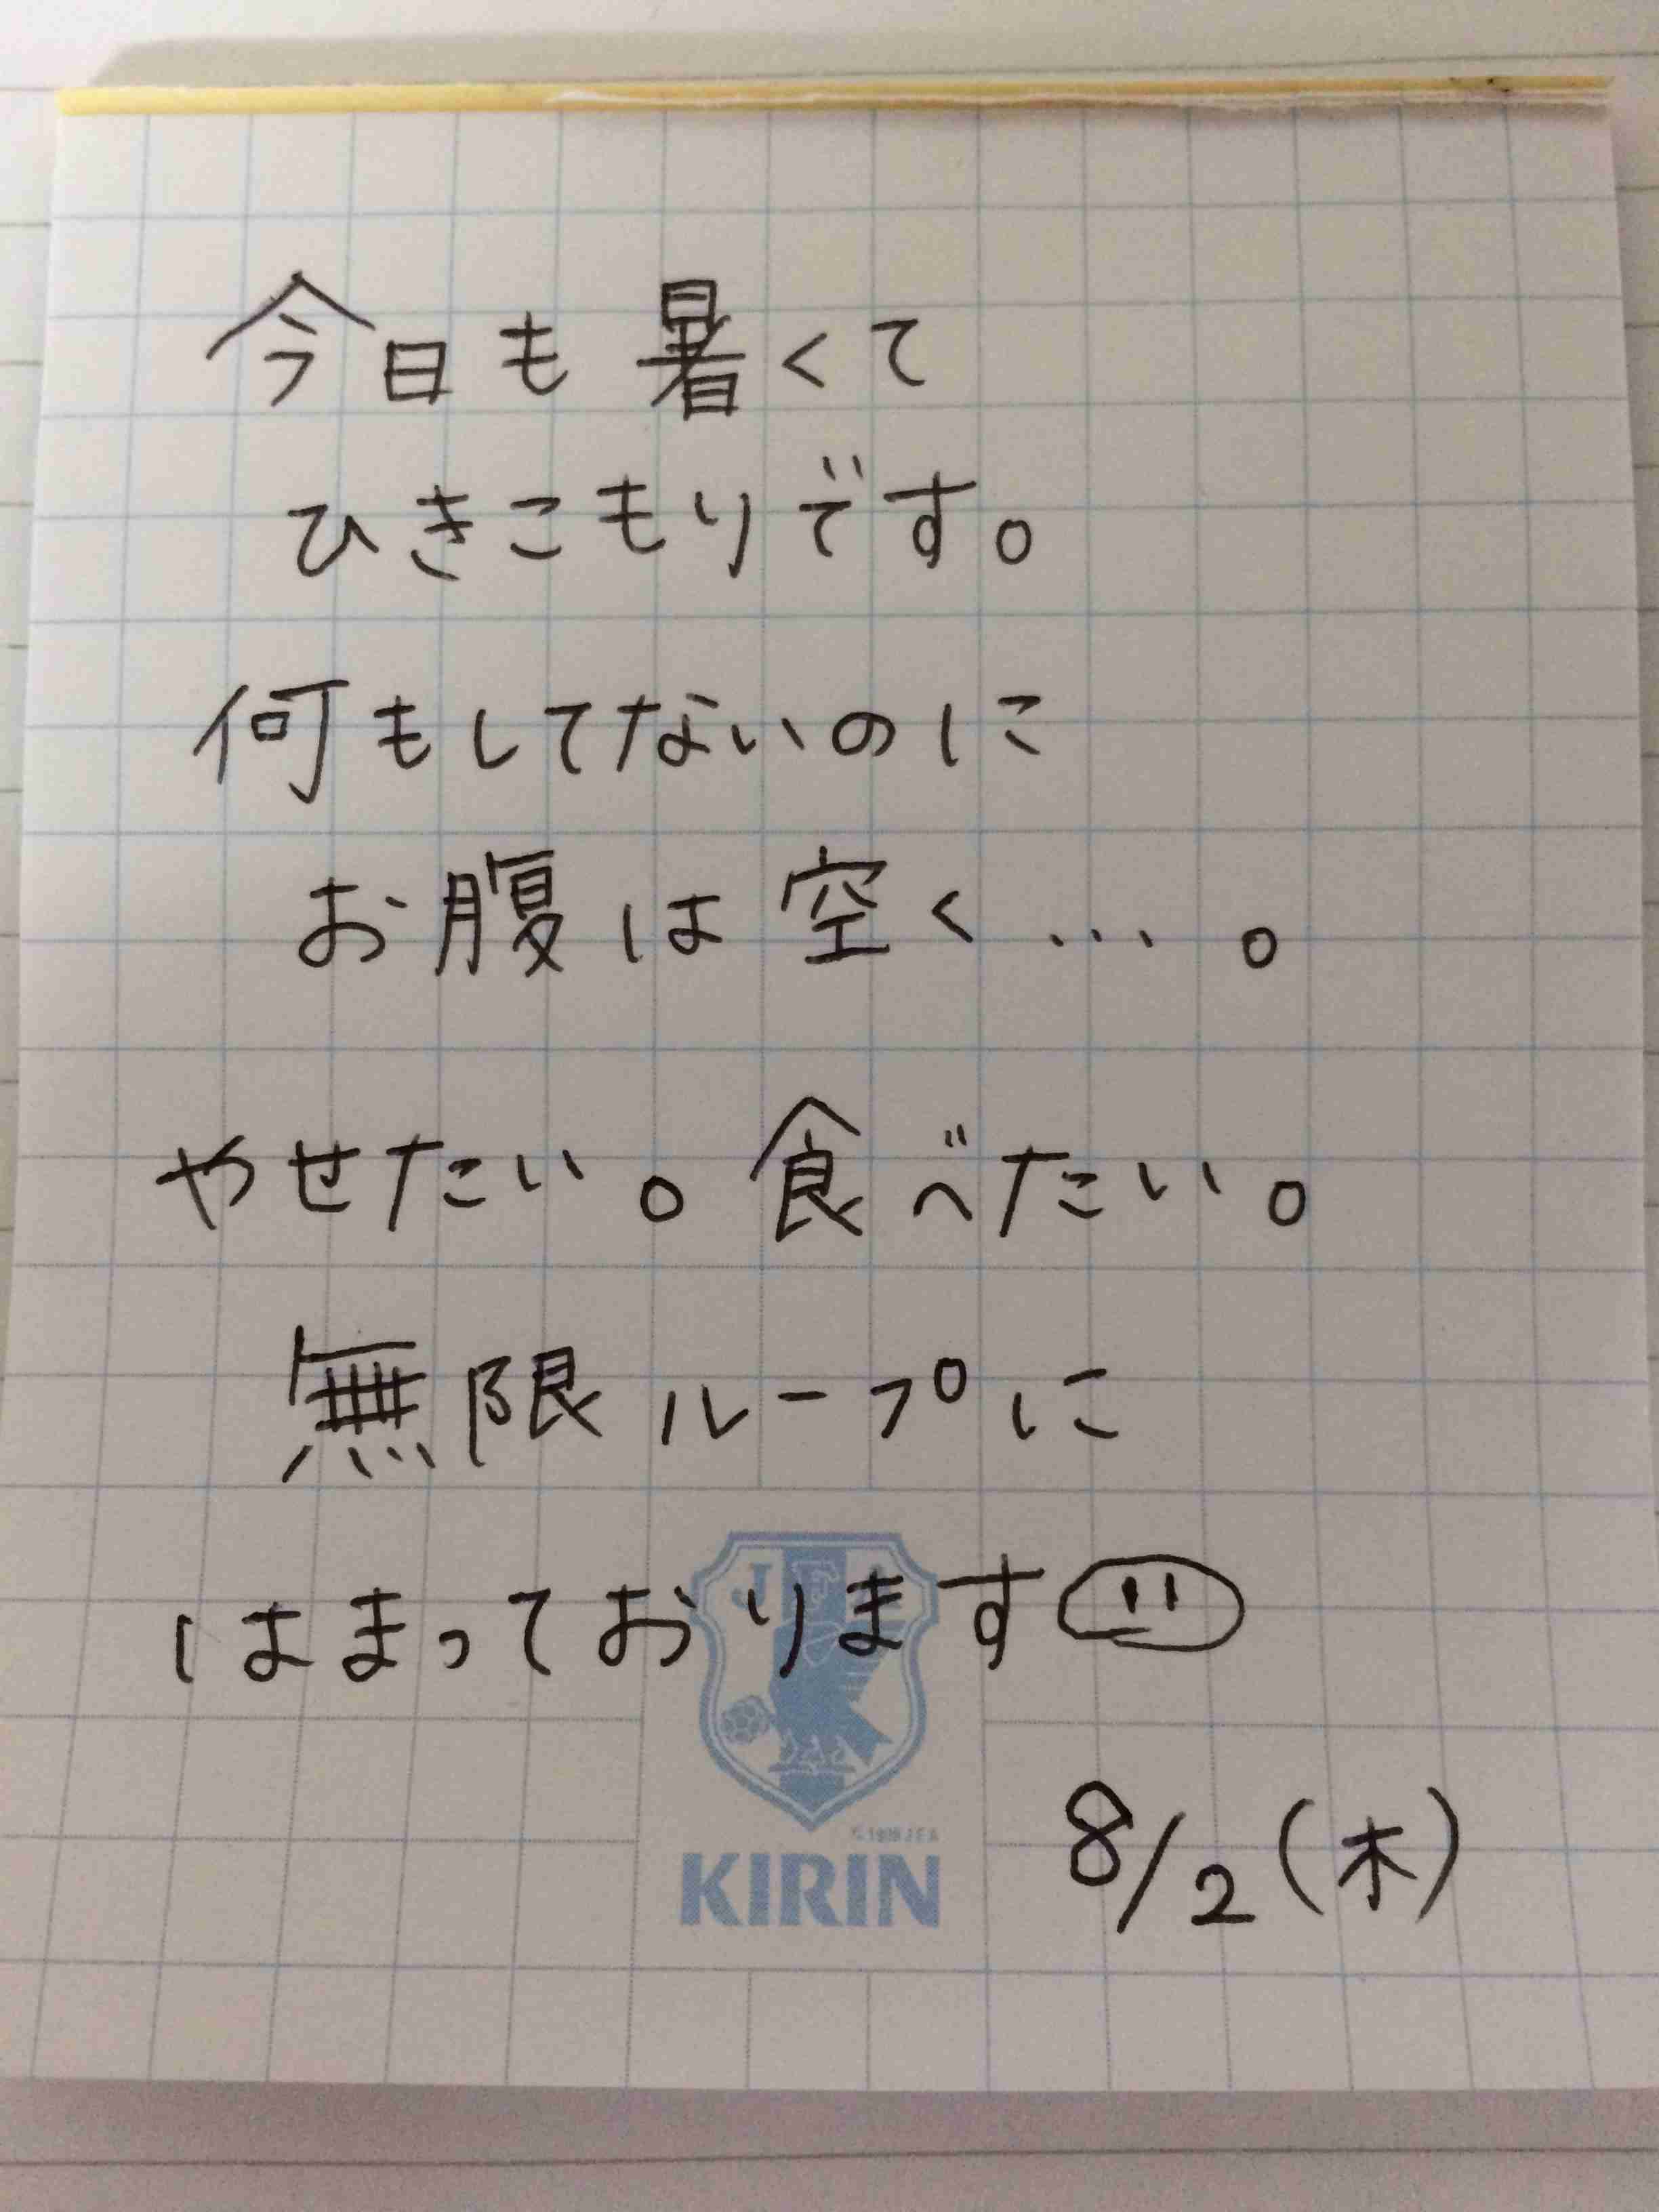 今日も暑くて
ひきこもりです。
何もしてないのに
お腹は空く…。
やせたい。食べたい。
無限ループに
はまっております
JFA
KIRIN
8/2(木)